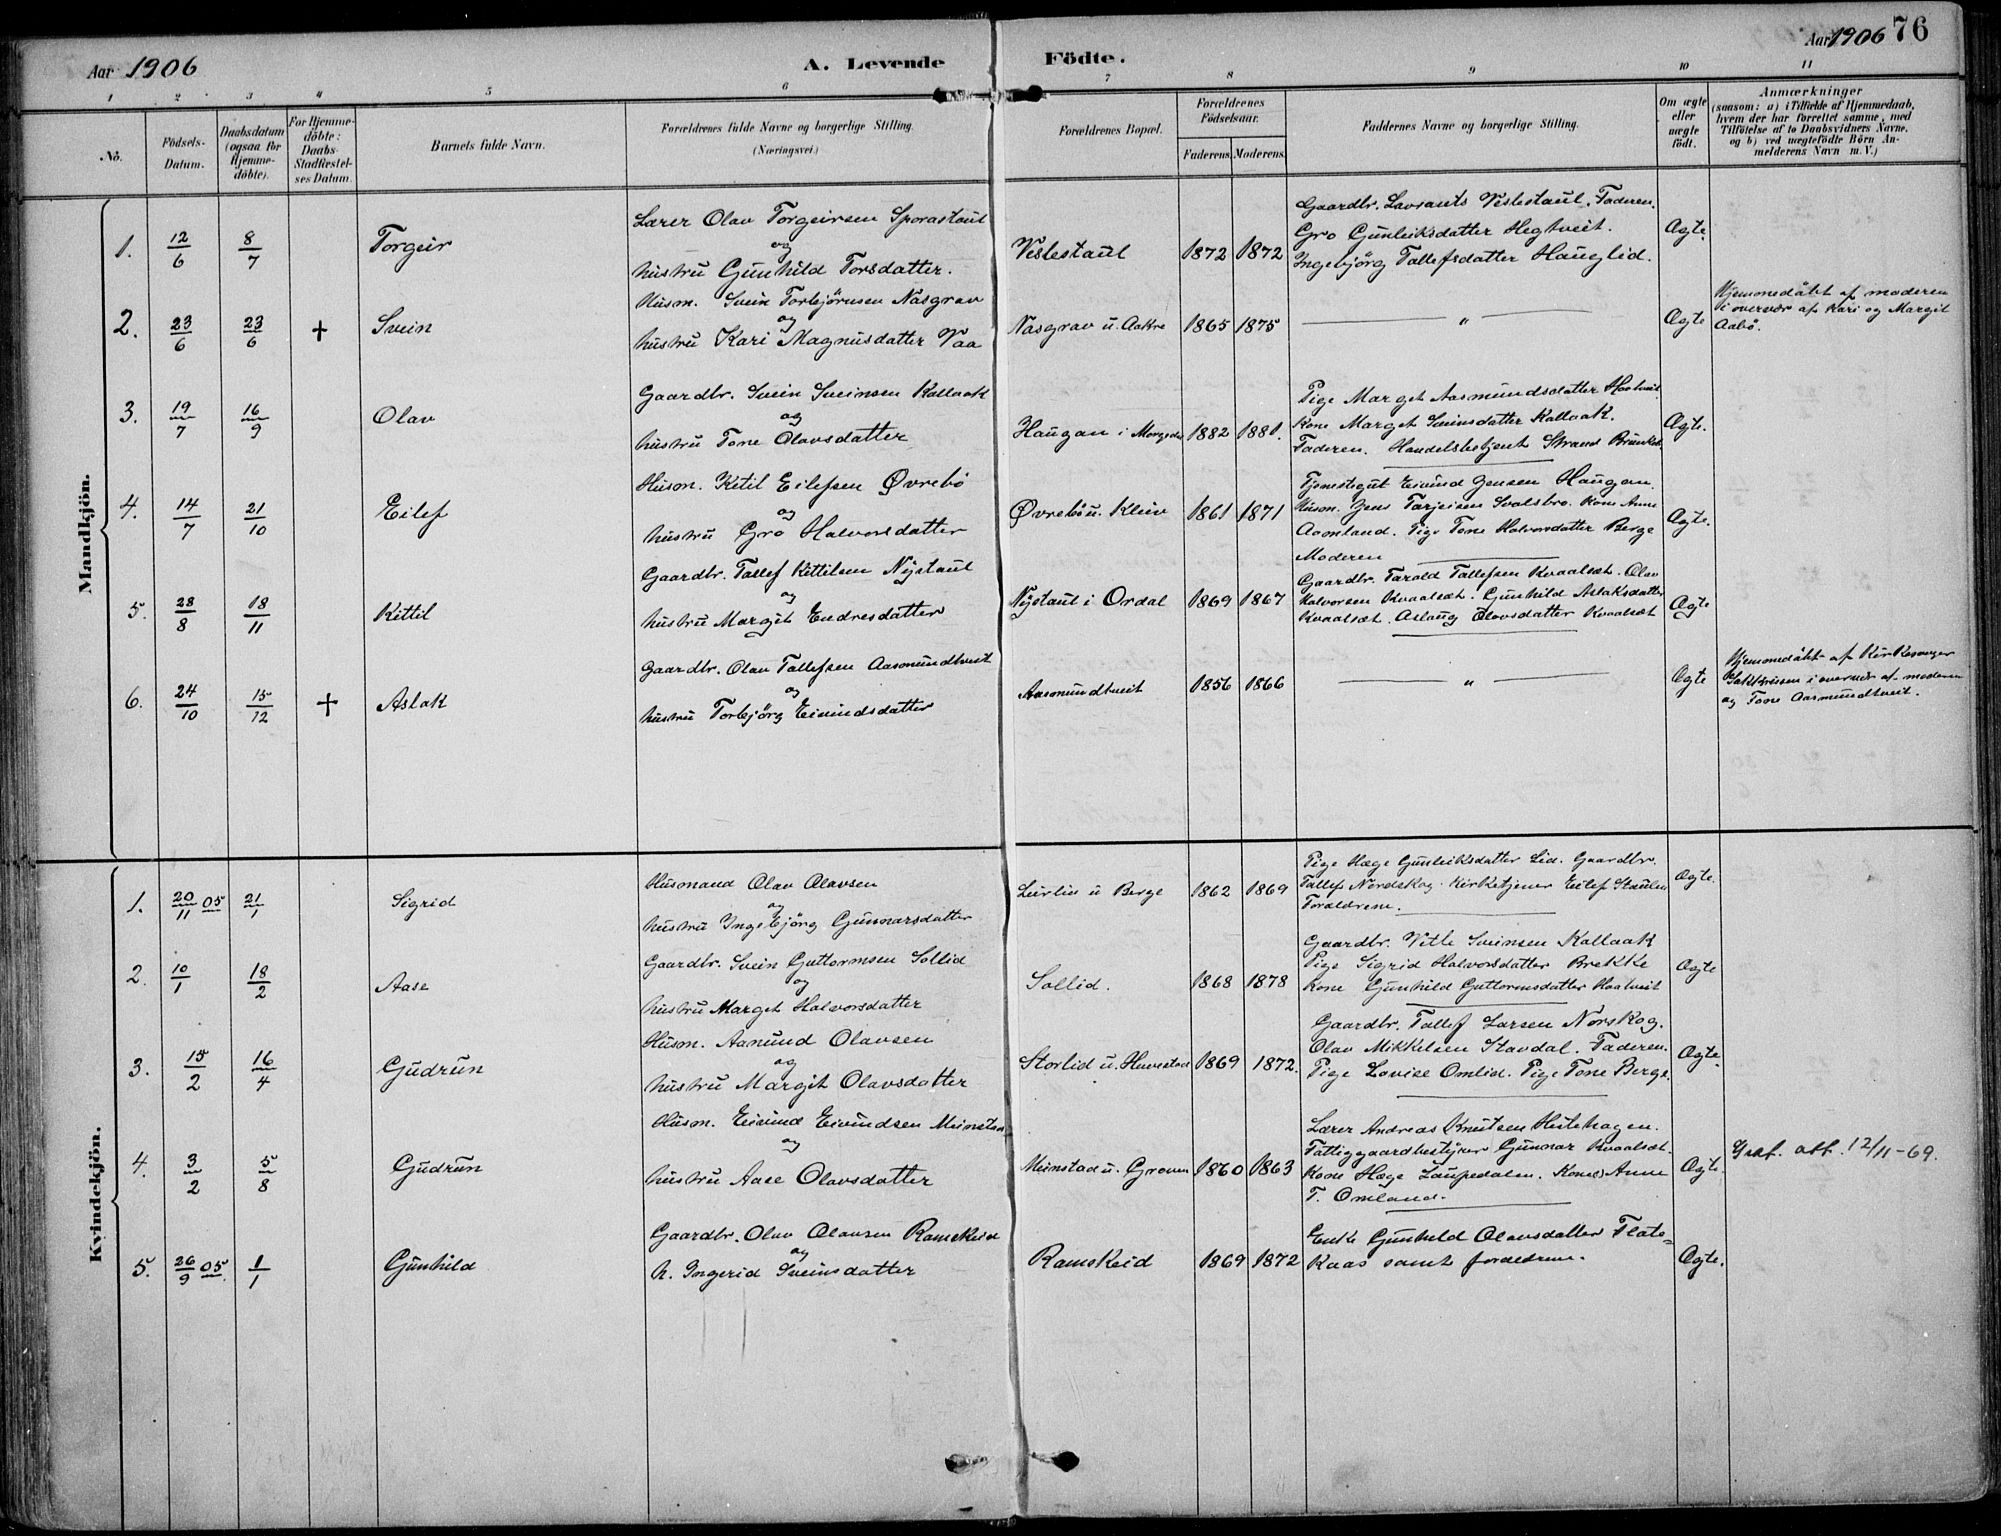 Aar 1906
A. Levende Födte.
Aar 1906 76
1 2 3 4 5 6 7 8 9 10 11
No.
Födsels-Datum.
Daabsdatum (ogsaa for Hjemme-döbte).
For Hjemme-döbte: Daabs-Stadfæstel-ses Datum.
Barnets fulde Navn.
Forældrenes fulde Navne og borgerlige Stilling. (Næringsvei.)
Forældrenes Bopæl.
Forældrenes Födselsaar.
Faderens. Moderens.
Faddernes Navne og borgerlige Stilling.
Om ægte eller uægte födt.
Anmærkninger
(saasom: a) i Tilfælde af Hjemmedaab, hvem der har forrettet samme, med Tilföielse af to Daabsvidners Navne, og b) ved uægtefödte Börn An-melderens Navn m. V.)
Mandkjön.
1. 12/6 8/7 Torgeir
Lærer Olav Torgeirsen Sporastaul
og
hustru Gunhild Torsdatter.
Vislestaul 1872 1872
Gaardbr. Lavrants Vislestaul. Faderen.
Gro Gunleiksdatter Hegtveit.
Ingebjörg Tallefsdatter Hauglid.
Ægte.
2. 23/6 23/6 + Svein
Husm. Svein Torbjörnsen Nasgrav
og
hustru Kari Magnusdatter Vaa
Nasgrav u. Aakre 1865 1875
— " —
Ægte
Hjemmedåbt af moderen
i overvær af Kari og Margit
Aabö.
3. 19/7 16/9 Olav
Gaardbr. Svein Sveinsen Kallaak
og
hustru Tone Olavsdatter
Haugan i Morgedal 1882 1881.
Pige Marget Aasmundsdatter Haatveit.
Kone Marget Sveinsdatter Kallaak.
Faderen. Handelsbetjent Strand
Ægte.
4. 14/7 21/10 Eilef
Husm. Ketil Eilefsen Øvrebö
og
hustru Gro Halvorsdatter
Øvrebö u. Kleiv 1861 1871
Tjenestegut Eivind Jensen Haugan.
Husm. Jens Tarjeisen Svalsbro. Kone Anne
Aamland. Pige Tone Halvorsdatter Berge
Moderen
Ægte.
5. 28/8 18/11 Kittil
Gaardbr. Tallef Kittilsen Nystaul
og
hustru Margit Endresdatter
Nystaul i Ordal 1869 1867
Gaardbr. Tarald Tallefsen Kvaalsæt. Olav
Halvorsen Kvaalsæt. Gunhild Aslaksdatter
Kvaalsæt. Aslaug Olavsdatter Kvaalsæt
Ægte
6. 24/10 15/12 + Aslak
Gaardbr. Olav Tallefsen Aasmundtveit
og
hustru Torbjörg Eivindsdatter
Aasmundtveit 1856 1866
— " —
Ægte
Hjemmedåbt af Kirkesanger
i overvær af moderen
og Tone Aasmundtveit.
Kvindekjön.
1. 20/11 05 21/1 Sigrid
Husmand Olav Olavsen
og
hustru Ingebjörg Gunnarsdatter
Lurlia u Berge 1862 1869
Pige Hæge Gunleiksdatter Lid. Gaardbr.
Tallef Nordskog. Kirketjener Eilef Staulen
Foræ­ldrene.
Ægte.
2. 10/1 18/2 Aase
Gaardbr. Svein Guttormsen Sollid
og
hustru Marget Halvorsdatter
Sollid. 1868 1878
Gaardbr. Vetle Sveinsen Kallaak
Pige Sigrid Halvorsdatter Brekke
Kone Gunhild Guttormsdatter Haatveit
Ægte
3. 15/2 16/4 Gudrun
Husm. Aanund Olavsen
og
hustru Margit Olavsdatter
Storlid u. Hævestad 1869 1872.
Gaardbr. Tallef Larsen Norskog.
Olav Mikkelsen Stavdal. Faderen.
Pige Lovise Omlid. Pige Tone Berge.
Ægte.
4. 3/2 5/8 Gudrun
Husm. Eivind Eivindsen Meinstad
og
hustru Aase Olavsdatter
Meinstad u. Groven 1860 1863
Lærer Andreas Knutsen Hestehagen.
Fattiggaardbestyrer Gunnar Kvaalsæt.
Kone Hæge Laupedalen. Kone Anne
T. Omland.
Ægte.
att. 12/11-69.
5. 26/9 05. 1/1 Gunhild
Gaardbr. Olav Olavsen Ramskeid
og
h. Ingerid Sveinsdatter
Ramskeid 1869 1872
Enke Gunhild Olavsdatter Flate=
kaas samt foræ­ldrene.
Ægte.